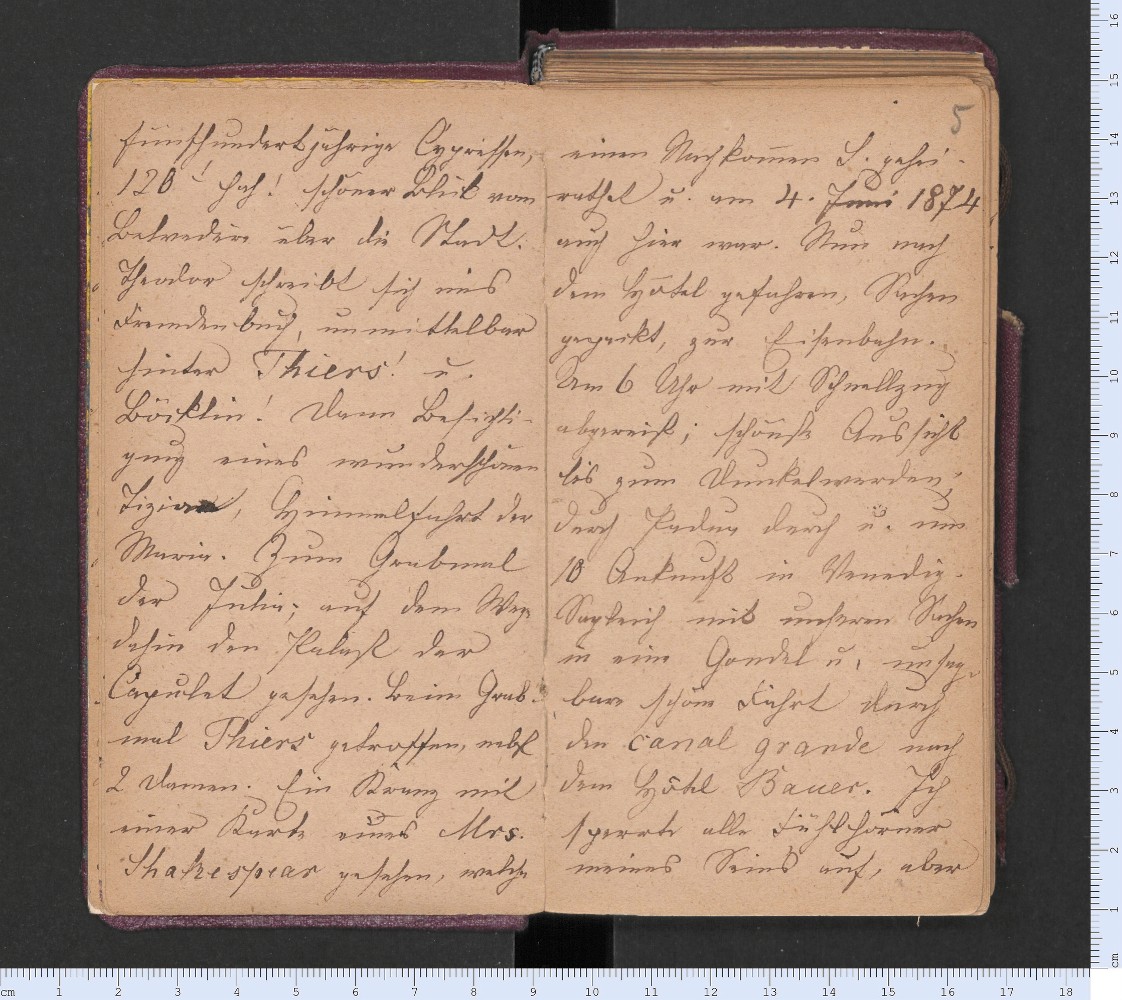 fünfhundertjährige Cypressen,
120' hoch! schöner Blick vom
Belvedere über die Stadt.
Theodor schreibt sich ins
Fremdenbuch, unmittelbar
hinter Thiers! u.
Böcklin! Dann Besichti-
gung eines wunderschönen
Tizian, Himmelfahrt der
Maria. Zum Grabmal
der Julia; auf dem Wege
dahin den Palast der
Capulet gesehen. Beim Grab-
mal Thiers getroffen, nebst
2 Damen. Ein Kranz mit
einer Karte eines Mrs.
Shakespear gesehen, welche
5
einen Nachkommen S. gehei-
rathet u. am 4. Juni 1874
auch hier war. Nun nach
dem Hôtel gefahren, Sachen
gepackt, zur Eisenbahn.
Um 6 Uhr mit Schnellzug
abgereist; schönste Aussicht
bis zum Dunkelwerden;
durch Padua durch u. um
10 Ankunft in Venedig.
Sogleich mit unseren Sachen
in eine Gondel u. unsag-
bare schöne Fahrt durch
den canal grande nach
dem Hôtel Bauer. Ich
sperrte alle Fühlhörner
meines Seins auf, aber